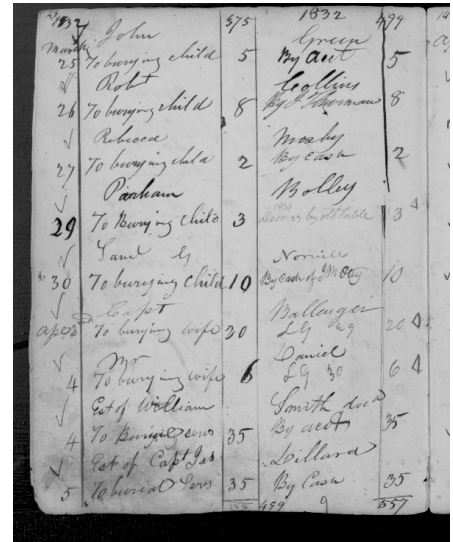 1832 375 1832 499
John Green
March
25 To burying child 5 By acct 5
Robt Collins
26 To burying child 8 By J Thurman 8
Rebecca Mosby
27 To burying child 2 By Cash 2
Parham Bolley
29 To Burying Child 3 by 3
Saml G Norvell
30 To burying Child 10 By Cash of J M Otey 10
Capt Ballenger
apr 3 To burying wife 30 LG 29 20
Mr Daniel
4 To burying wife 6 LG 30 6
Est of William Smith decd
4 To Burial serv 35 By acct 35
Est of Capt Jas Dillard
5 To burial Servs 35 By Cash 35
499 557